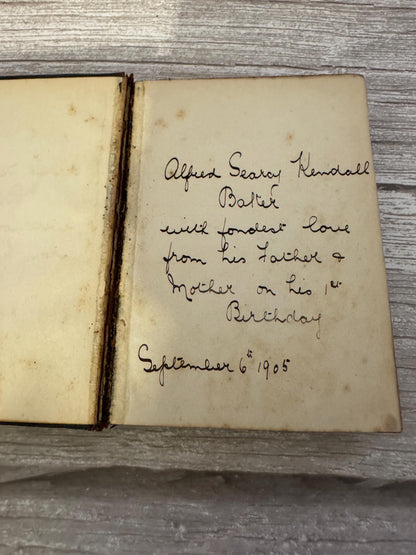 Alfred Searcy Kendall
Baker
with fondest love
from his Father &
Mother on his 1st
Birthday
September 6th 1905